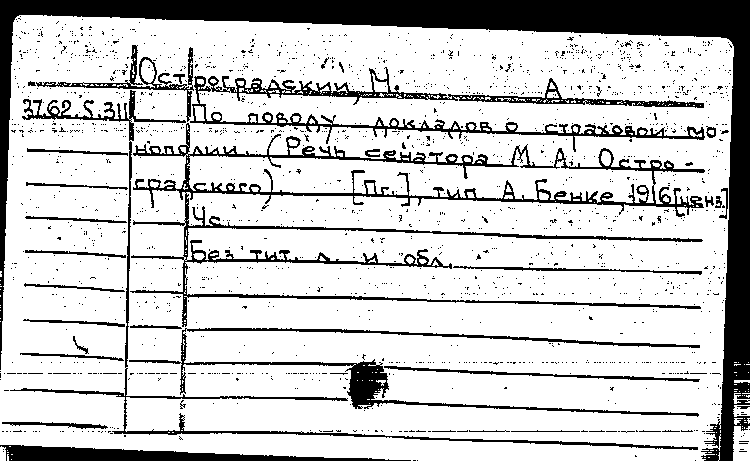 Остроградский, М. А
37.62.5.311 По поводу докладов о страховой мо-
нополии. (Речь сенатора М. А. Остро-
градского). [Пг.], тип. А. Бенке, 1916 [ценз]
4с.
Без тит. л. и обл.